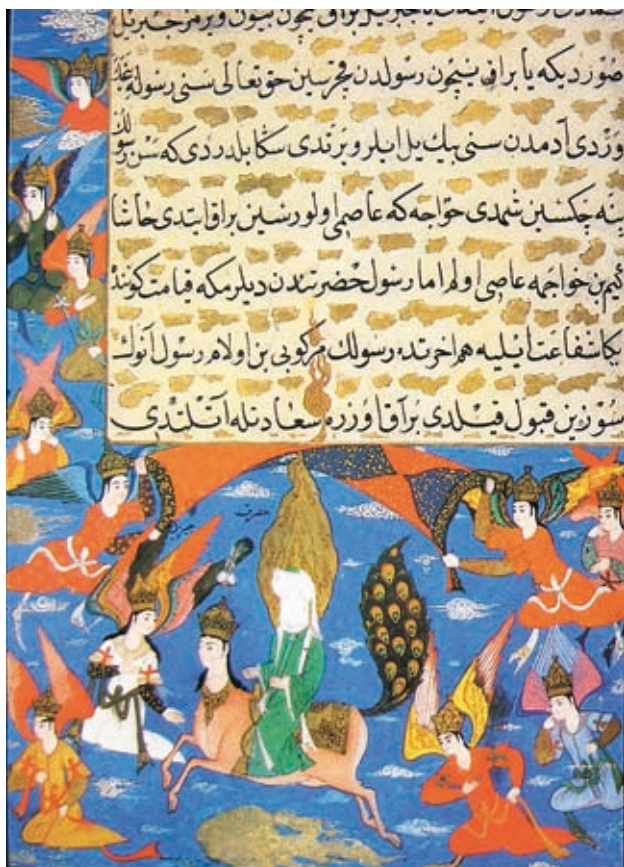 صوردیکه یا براق نیچون رسولدن قچرسین حق تعالی سنی رسوله
وردی آدمدن سنی بیك یل ایلرو یرتدی سکا بلدردی که سن رسولك
ینه چکسین شمدی خواجه که عاصمی اولورسین براق ایتدی حاشا
کیم بن خواجمه عاصی اولم اما رسول حضرتندن دیلرمکه قیامت کوننده
بکا شفاعت ایلیه هم اخرتده رسولك مرکوبی بن اولام رسول آنوك
سوزین قبول قیلدی براق اوزره سعادتله آتلندی
حضرت
جبرائل